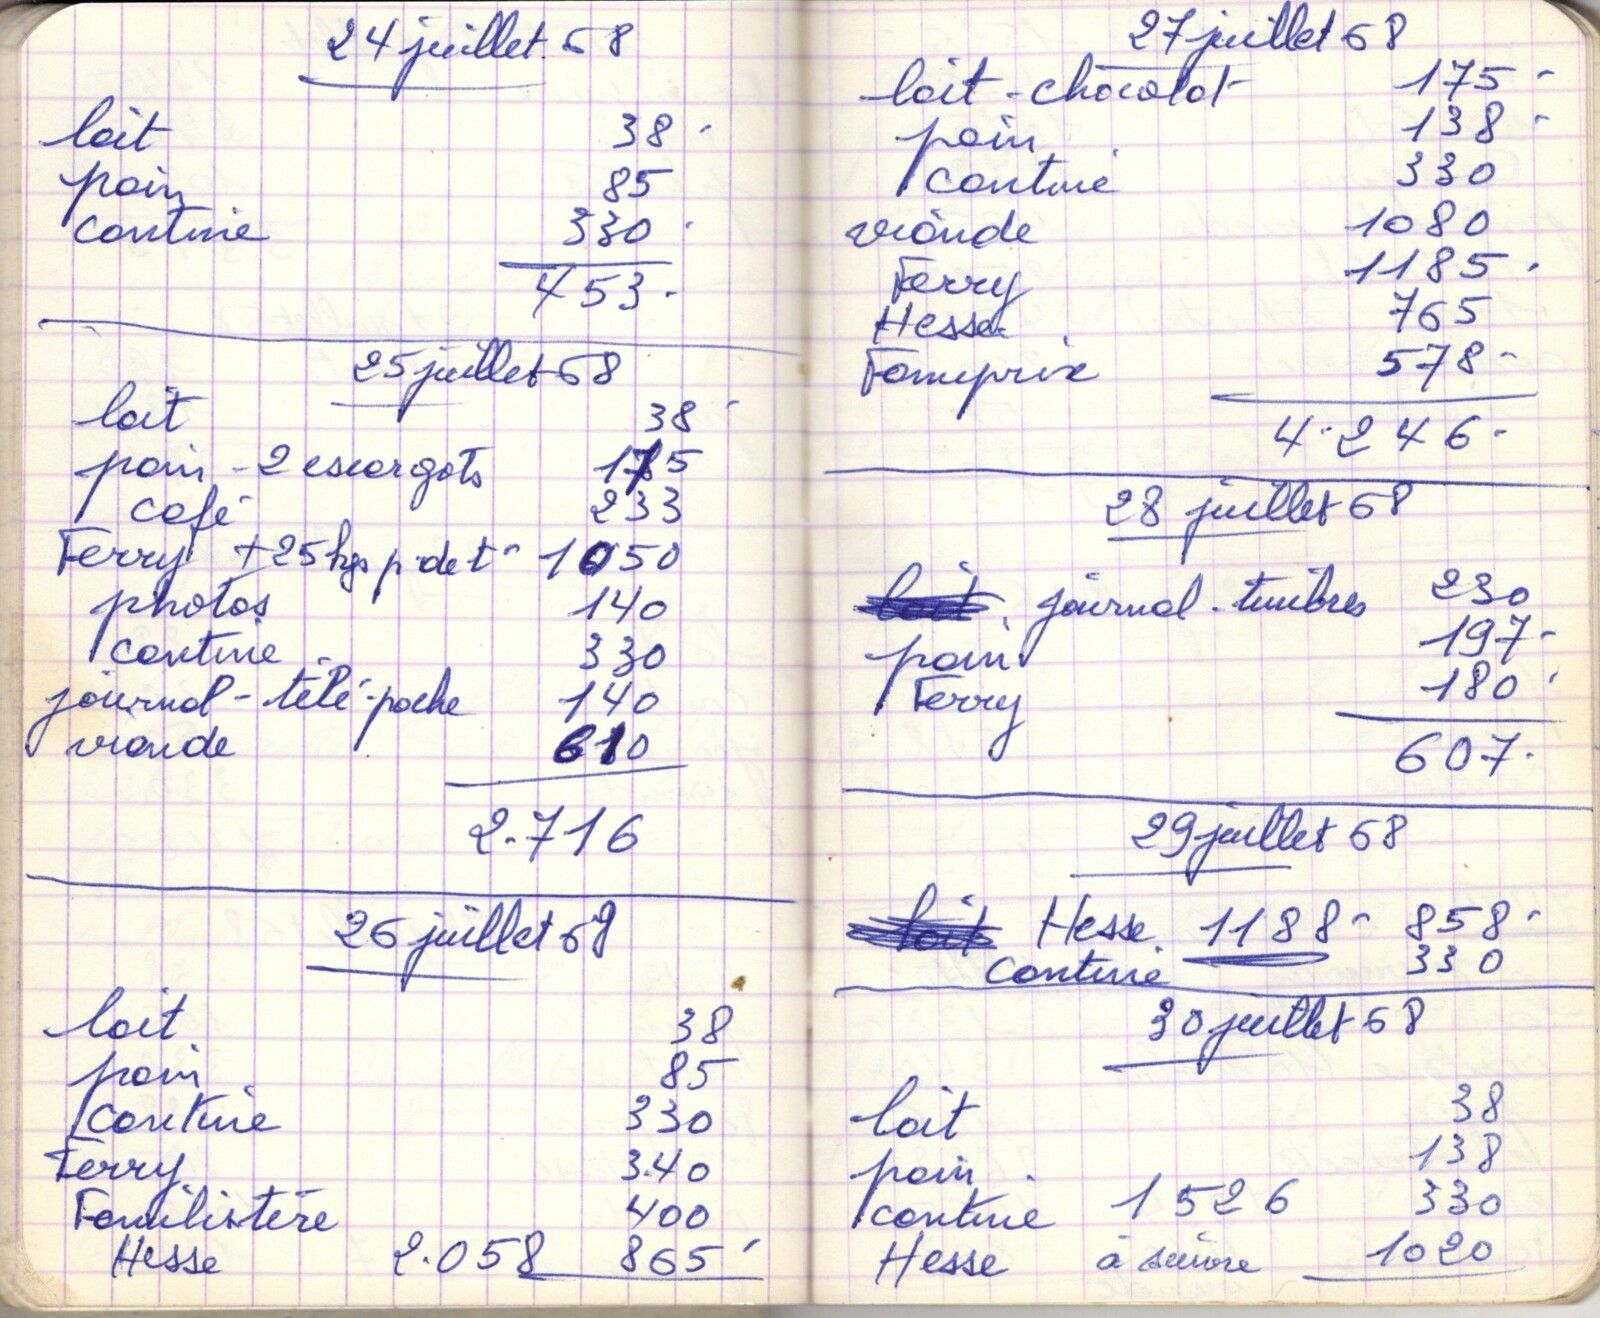 24 juillet 68
lait 38
pain 85
cantine 330
453
25 juillet 68
lait 38
pain - 2 escargots 175
café 233
Ferry + 25 kgs p. de t 1050
photos 140
cantine 330
journal - télé-poche 140
viande 610
2.716
26 juillet 68
lait 38
pain 85
cantine 330
Ferry 340
Familistère 400
Hesse 2.058 865
27 juillet 68
lait - chocolat 175
pain 138
cantine 330
viande 1080
Ferry 1185
Hesse 765
Famiprix 578
4.246
28 juillet 68
lait journal - timbres 230
pain 197
Ferry 180
607
29 juillet 68
lait Hesse 1188 858
cantine 330
30 juillet 68
lait 38
pain 138
cantine 1526 330
Hesse à suivre 1020